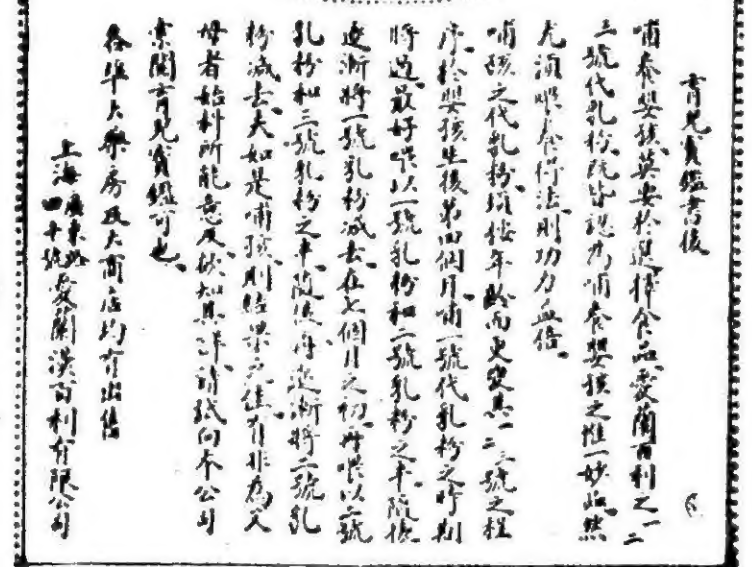 育兒寶鑑書後
哺養嬰孩莫要於選擇食品愛蘭百利之一二
三號代乳粉既皆認爲哺養嬰孩之惟一妙品然
尤須喂養得法則功力益倍
哺孩之代乳粉須按年齡而更變焉一二三號之程
序於嬰孩生後第四個月哺一號代乳粉之時期
將過最好喂以一號乳粉和二號乳粉之半隨後
逐漸將一號乳粉減去在七個月之初再喂以二號
乳粉和三號乳粉之半隨後再逐漸將二號乳
粉減去夫如是哺孩則結果之佳有非爲父
母者始料所能意及欲知其詳請紙向本公司
索閱育兒寶鑑可也
各埠大藥房及大商店均有出售
上海廣東路四十號愛蘭漢百利有限公司